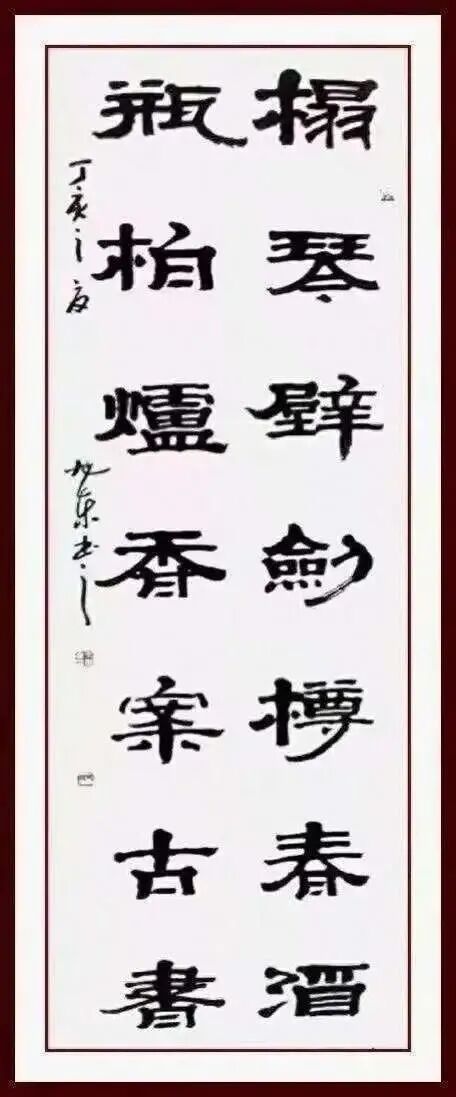 榻琴壁劍樽春酒
瓶柏爐香案古書
丁亥之
旭东书之